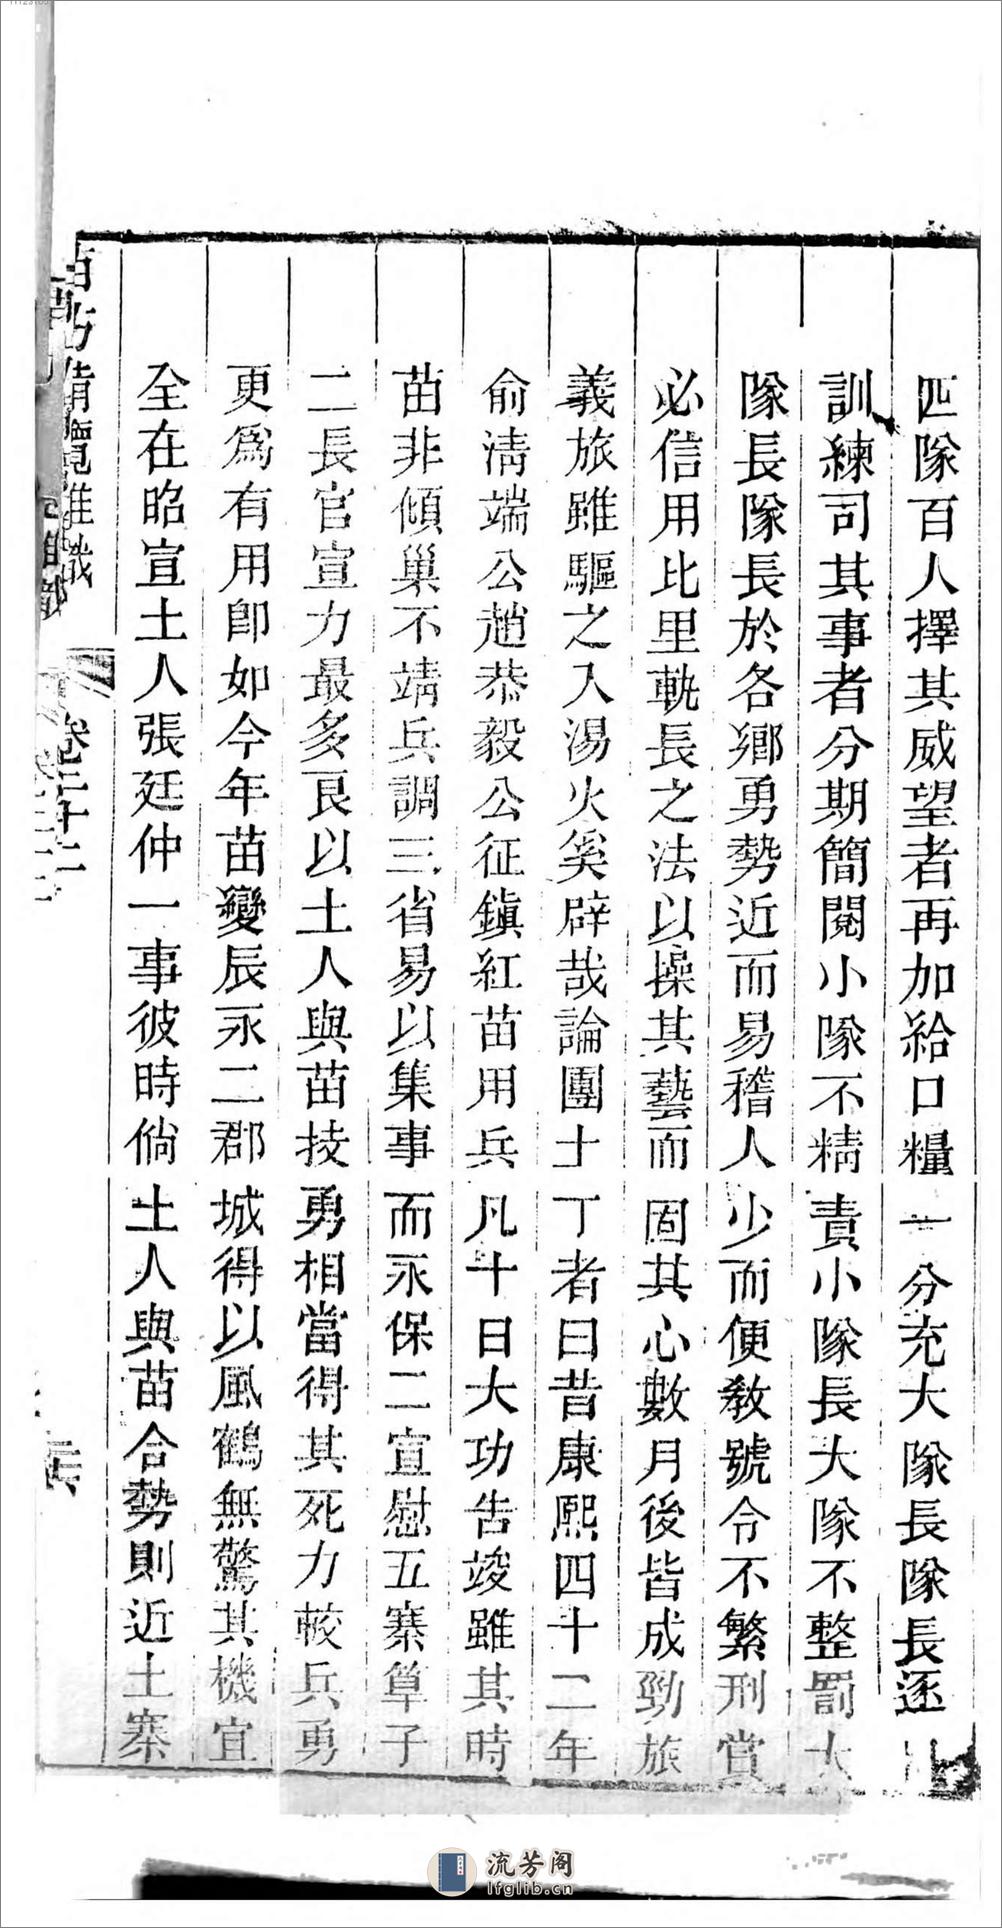 四隊百人擇其威望者再加給口糧一分充大隊長隊長逐
訓練司其事者分期簡閱小隊不精責小隊長大隊不整罰大
隊長隊長於各鄉勇勢近而易稽人少而便教號令不繁刑賞
必信用比里軌長之法以操其藝而固其心數月後皆成勁旅
義旅雖驅之入湯火奚辟哉論團土丁者曰昔康熙四十二年
俞淸端公趙恭毅公征鎭紅苗用兵凡十日大功告竣雖其時
苗非傾巢不靖兵調三省易以集事而永保二宣慰五寨筸子
二長官宣力最多良以土人與苗技勇相當得其死力較兵勇
更爲有用卽如今年苗變辰永二郡城得以風鶴無驚其機宜
全在昭宣土人張廷仲一事彼時倘土人與苗合勢則近土寨
苗防備覽雜識
卷二十二
流芳阁
lfglib.cn